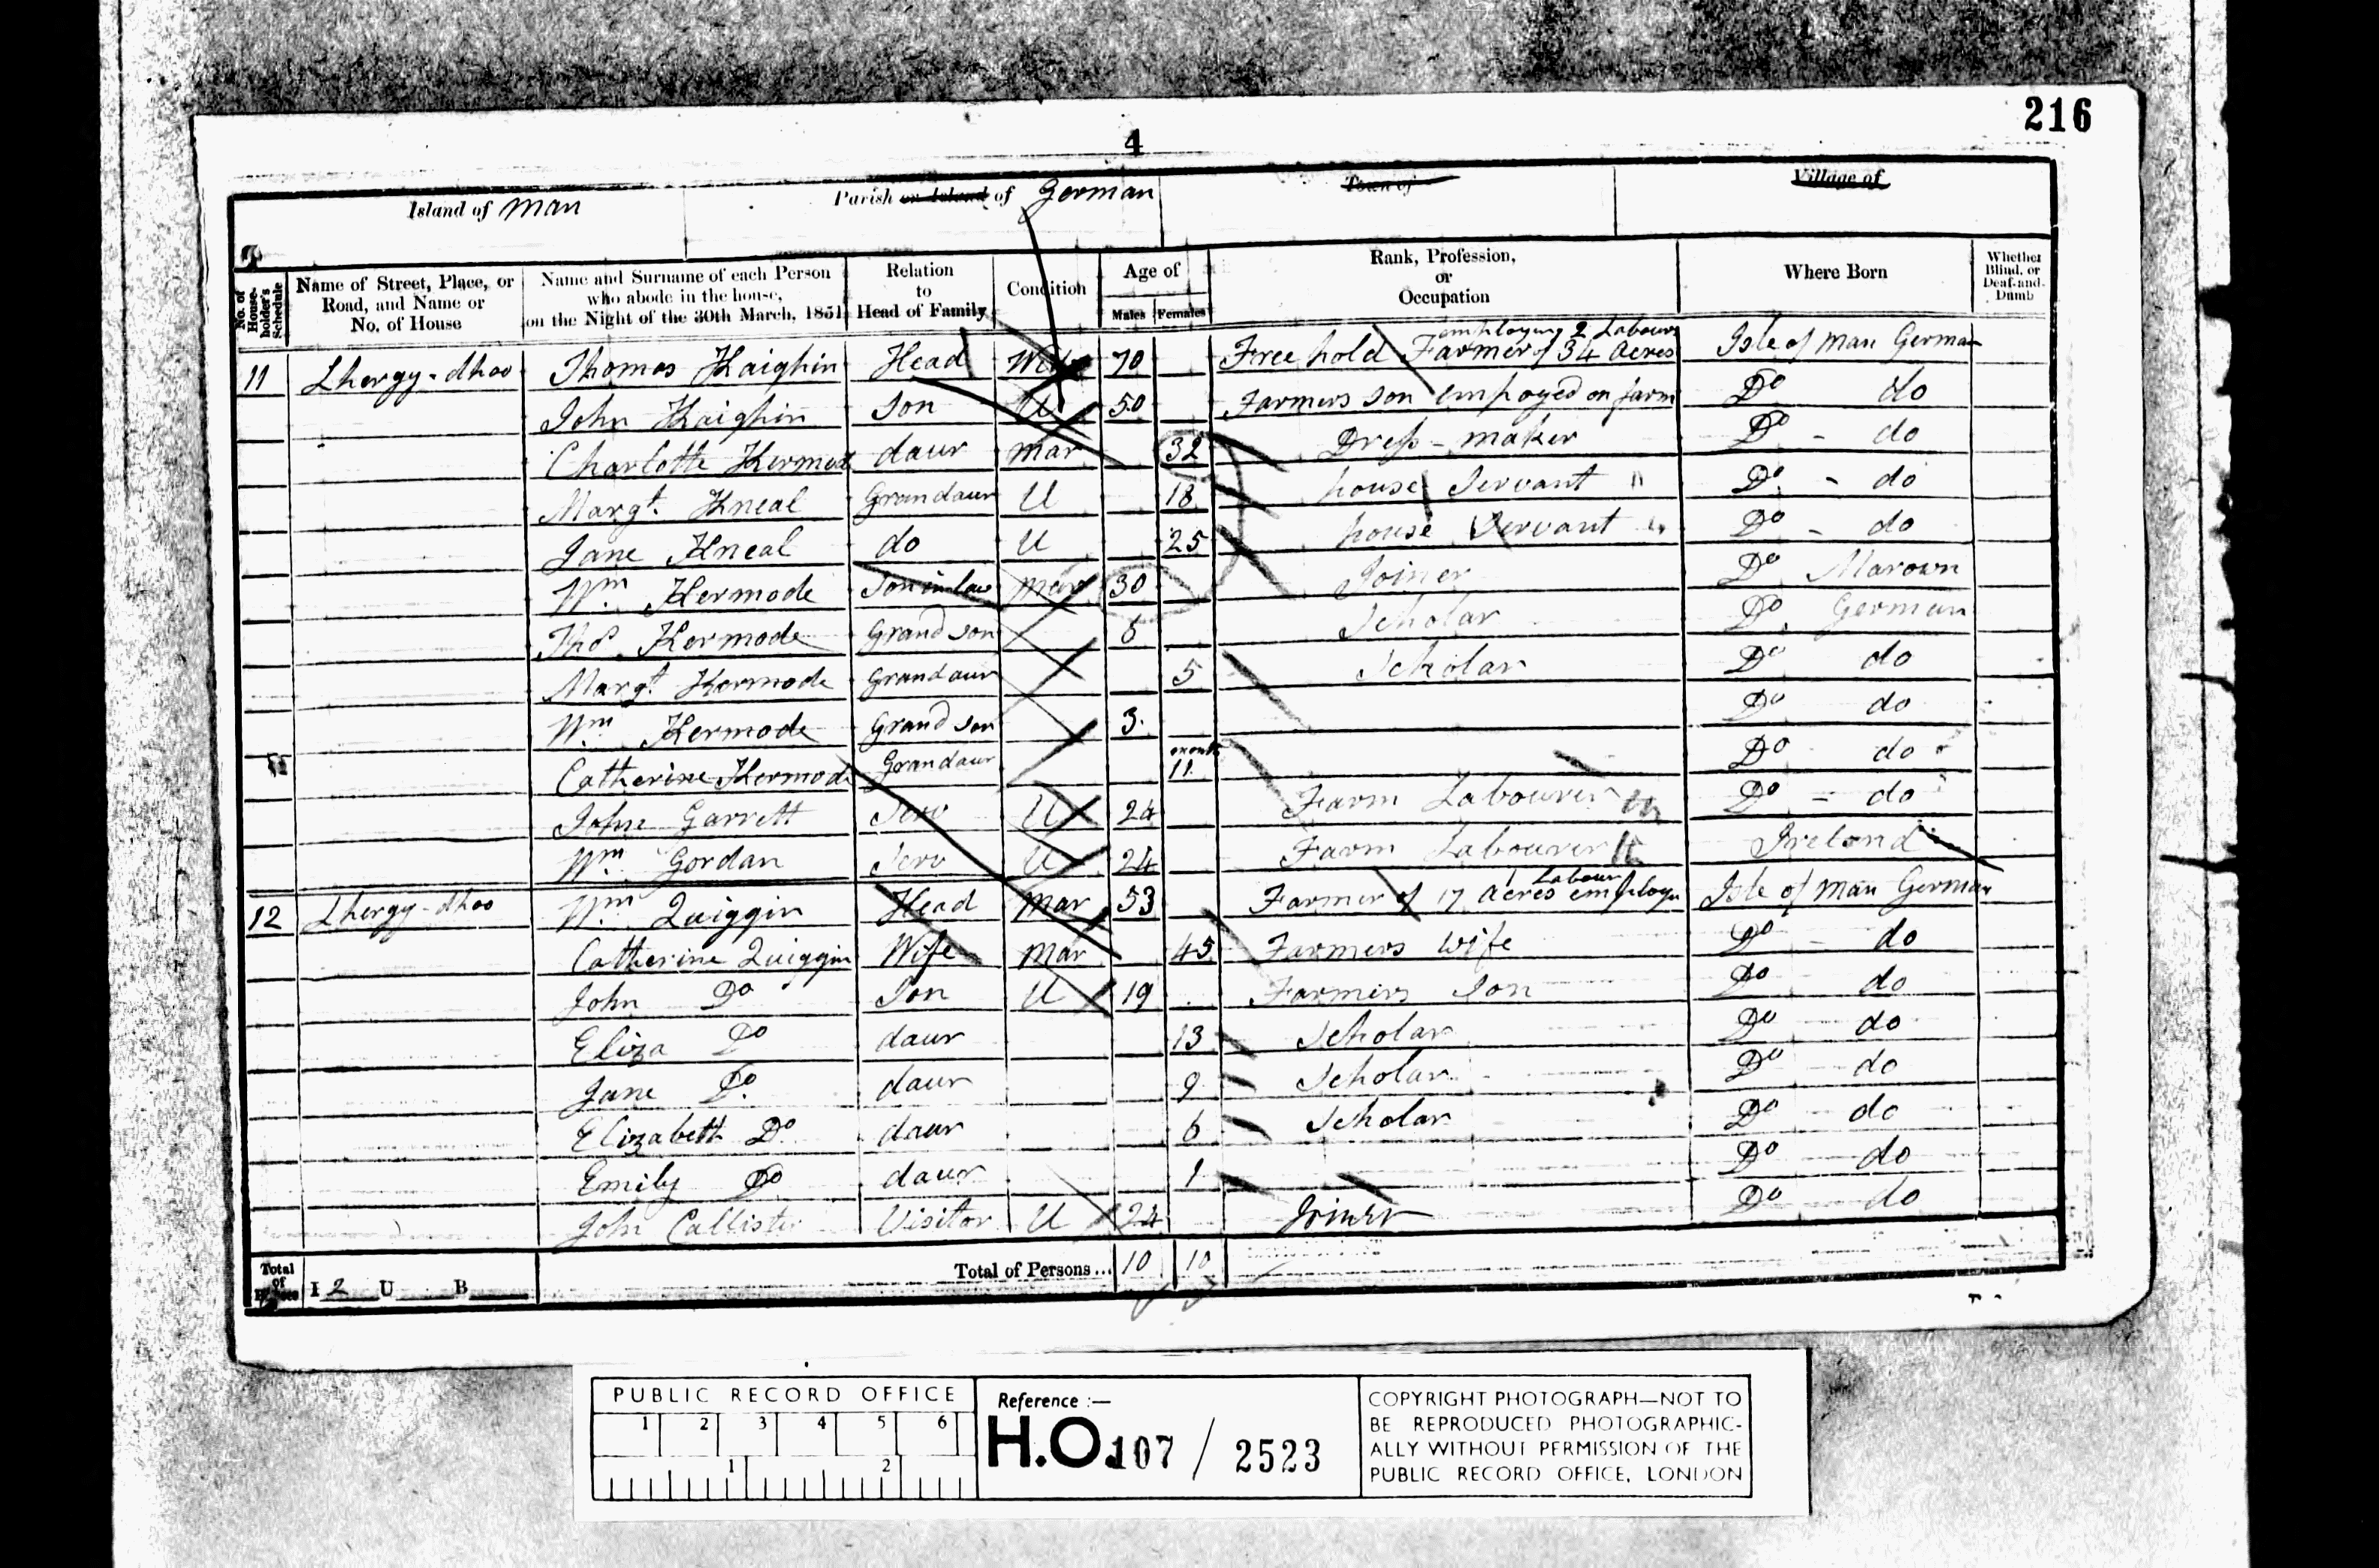 216
4
Island of Man Parish or Island of German Town of Village of
No. of House-holder's Schedule
Name of Street, Place, or Road, and Name or No. of House
Name and Surname of each Person who abode in the house, on the Night of the 30th March, 1851
Relation to Head of Family
Condition
Age of
Males Females
Rank, Profession, or Occupation
Where Born
Whether Blind, or Deaf-and-Dumb
employing 2 Labour
11 Lhergy-dhoo Thomas Kaighin Head 70 Free hold Farmer of 34 Acres Isle of Man German
John Kaighin Son U 50 Farmers Son employed on farm Do do
Charlotte Kermode daur Mar 32 Dress-maker Do - do
Margt. Kneal Grandaur U 18 house Servant Do - do
Jane Kneal do U 25 house Servant Do - do
Wm Kermode Son in law Mar 30 Joiner Do Marown
Thos Kermode Grand Son Scholar Do German
Margt Kermode Grandaur 5 Scholar Do do
Wm Kermode Grand Son 3 Do do
Catherine Kermode Grandaur months 11 Do do
John Garrett Serv U 24 Farm Labourer Do - do
Wm Gordan Serv U 24 Farm Labourer Ireland
Labour
12 Lhergy-dhoo Wm Quiggin Head Mar 53 Farmer of 17 Acres employ Isle of Man German
Catherine Quiggin Wife Mar 45 Farmers Wife Do - do
John Do Son U 19 Farmers Son Do do
Eliza Do daur 13 Scholar Do - do
Jane Do daur 9 Scholar Do - do
Elizabeth Do daur 6 Scholar Do - do
Emily Do daur 1 Do do
John Callister Visitor U 24 Joiner Do do
Total of Houses I 2 U B Total of Persons... 10 10
PUBLIC RECORD OFFICE
1 2 3 4 5 6
1 2
Reference :-
H.O. 107 / 2523
COPYRIGHT PHOTOGRAPH—NOT TO
BE REPRODUCED PHOTOGRAPHIC-
ALLY WITHOUT PERMISSION OF THE
PUBLIC RECORD OFFICE, LONDON